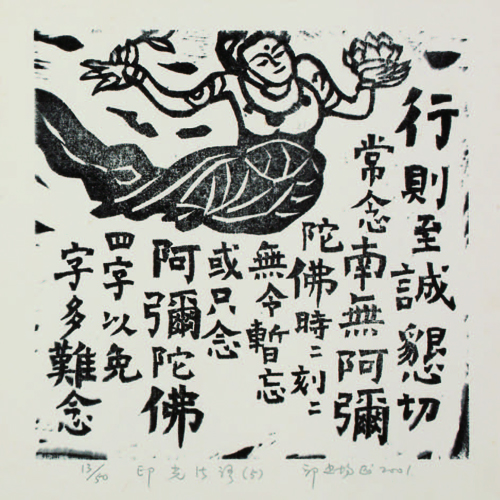 行則至誠懇切
常念南無阿彌
陀佛時二刻二
無令暫忘
或只念
阿彌陀佛
四字以免
字多難念
13/50 印光法語(5) 2001